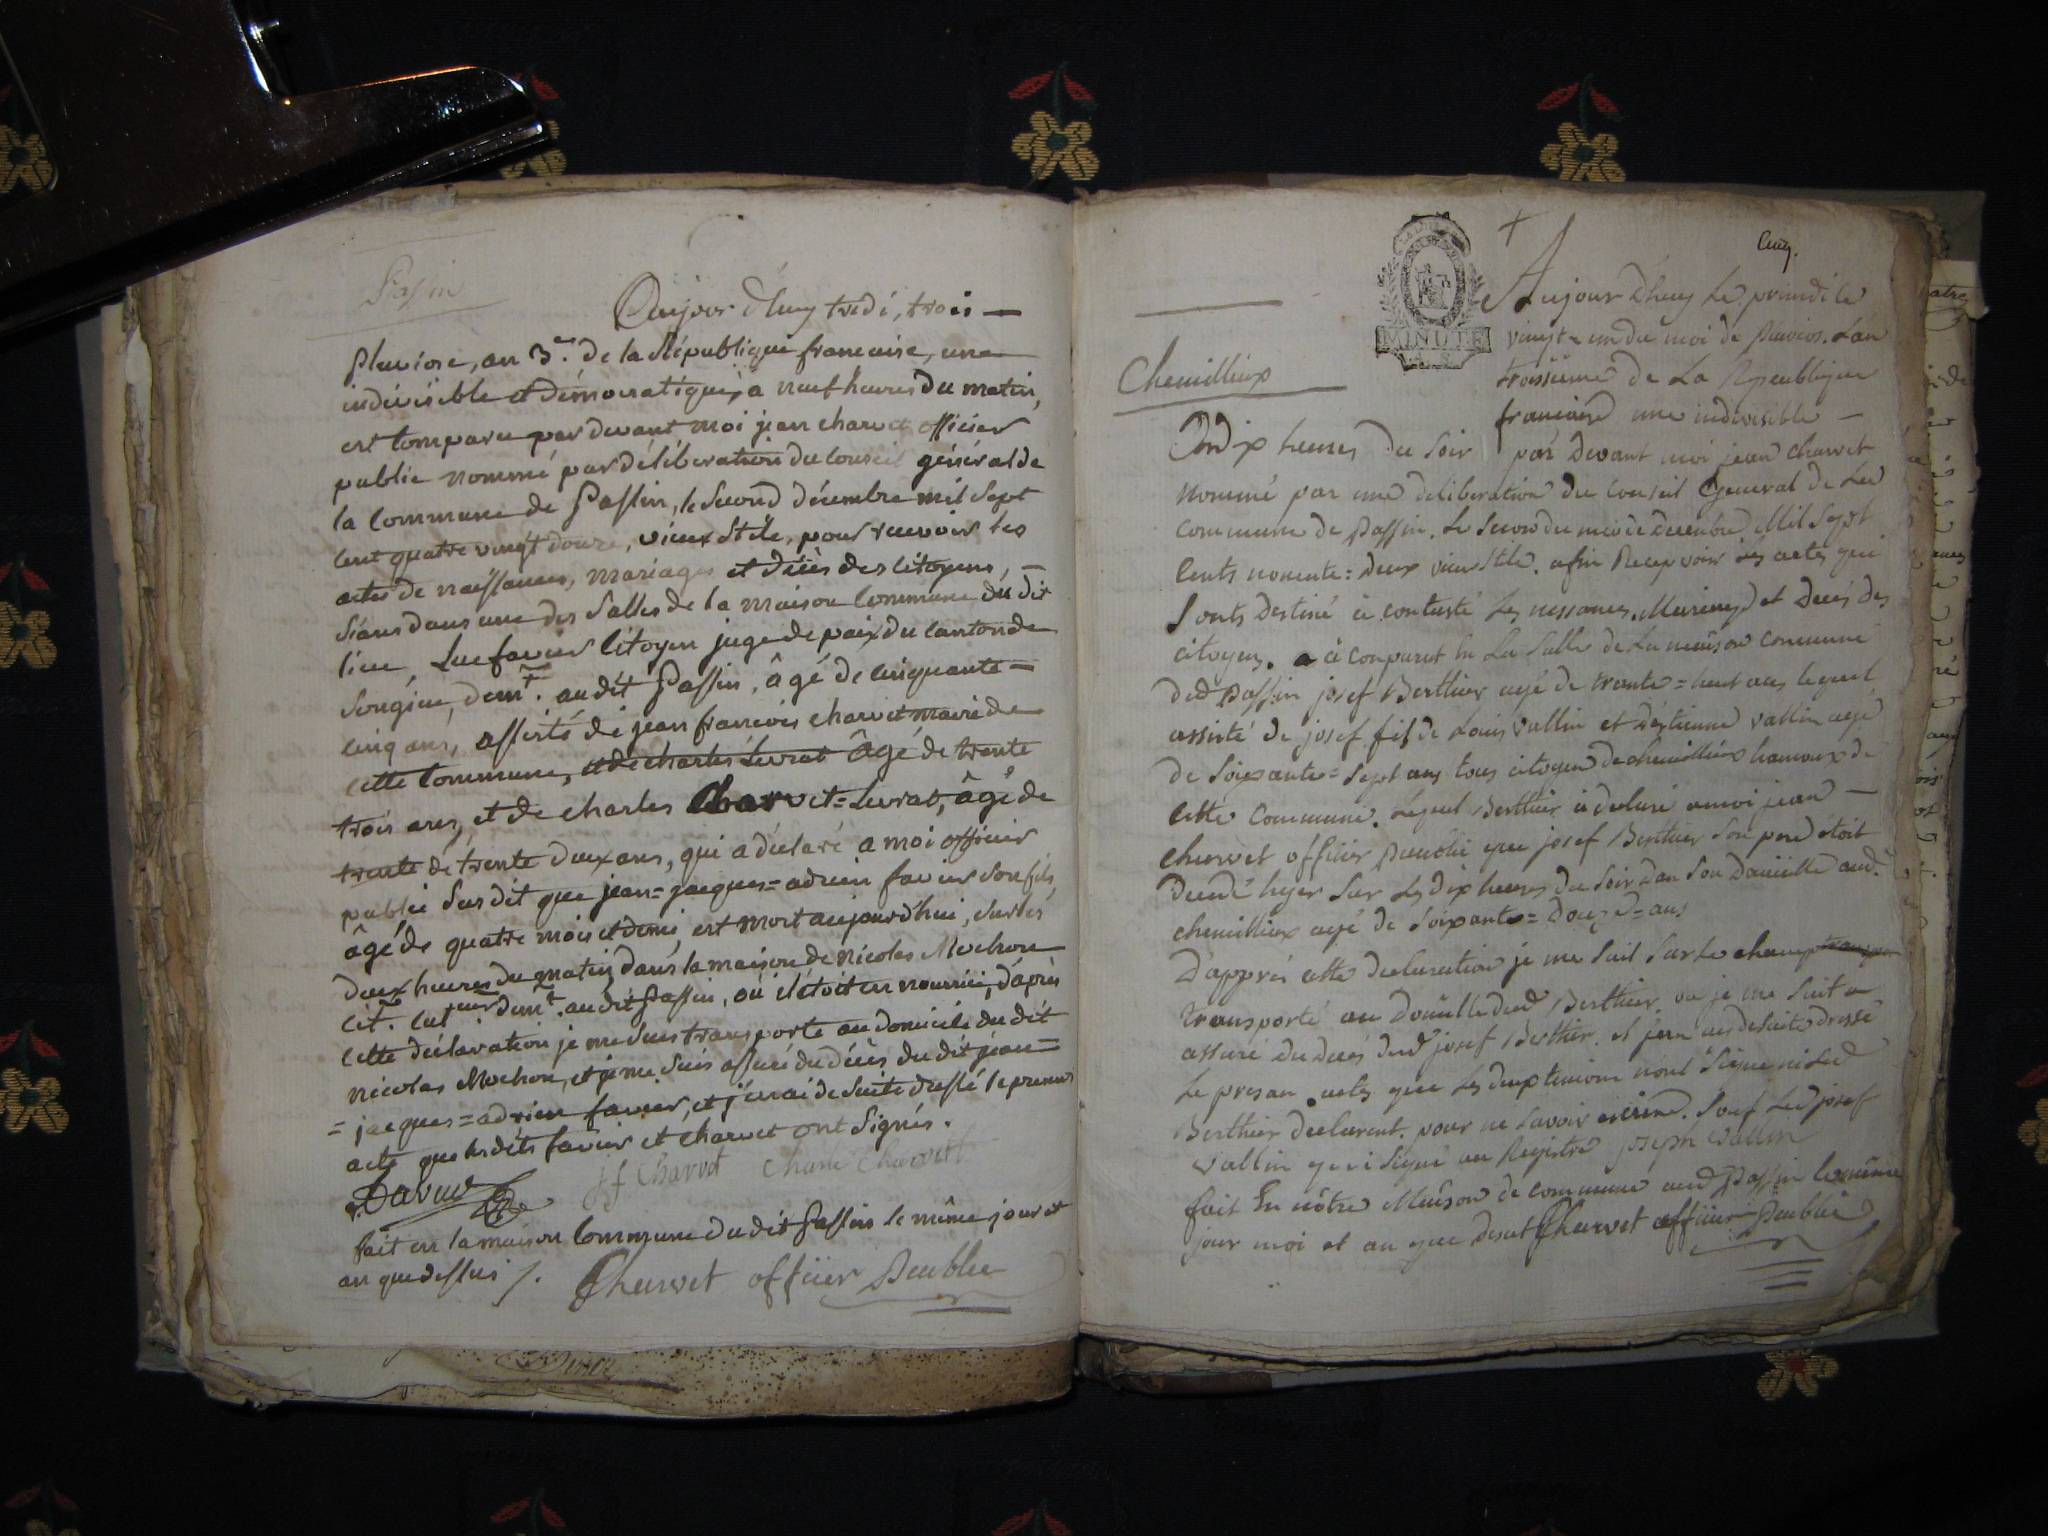 Passin
Aujour d'huy tridi, trois —
pluviose, an 3e. de la République francaise, une
indivisible et démocratique, a neuf heures du matin,
est comparu par devant moi jean charvet officier
public nommé par délibération du conseil général de
la Commune de Passin, le second décembre mil sept
cent quatre vingt douze, vieux stile, pour recevoir les
actes de naissances, mariages et décès des citoyens, —
séans dans une des salles de la maison commune du dit
lieu, Luc favier citoyen juge de paix du canton de
Songieu, demt. au dit Passin, âgé de cinquante —
cinq ans, assisté de jean francois charvet maire de
cette commune, et de charles Livrat âgé de trente
trois ans, et de charles Charvet = Livrat, âgé de
trente de trente deux ans, qui a déclaré a moi officier
public susdit que jean = jacques = adrien favier son fils,
âgé de quatre mois et demi, est mort aujourd'hui, sur les
deux heures du matin, dans la maison de nicolas Mochon
cit. cult. demt. au dit Passin, où il étoit en nourrice, d'après
cette déclaration je me suis transporté au domicile du dit
nicolas Mochon, et je me suis assuré du décès du dit jean =
= jacques = adrien favier, et j'en ai de suite dressé le present
acte que lesdits favier et Charvet ont signés.
favier jf Charvet Charle Charvet
fait en la maison commune du dit Passin le même jour et
an que dessus /. Charvet officier Peublie
Cinq.
MINUTE
Aujour d'huy Le primdi le
vingt = un du moi de Pluvios. Lan
troisieme de La Republique
francaise une indivisible —
Chemillieux
a dix heures du soir par devant moi jean charvet
nommé par une deliberation du conseil General de Led
commune de Passin. Le second du moi de decembre Mil Sept
Cents nonente = deux vieu stile. afin Recepvoir Les actes qui
sonts destiné à contasté Les nessances. Mariages et Decés des
citoyens. a à conparut en La Salle de La maison commune
dud Passin josef Berthier agé de trante = huit ans lequel
assisté de josef fils de Louis vallin et d'éstienne vallin agé
de soixante = sept ans tous citoyen de chemillieux hamaux de
cette commune. Lequel Berthier à declaré a moi jean —
charvet officier Peublic que josef Berthier son pere étoit
decedé hyer sur Les dix heures du soir dan son Domicille aud.
chemillieux agé de soixante = douze = ans
D'apprés cette declaration je me suit sur le champ
transporté au Domicille dud Berthier ou je me suit
assuré du decés dud josef Berthier. et jean ai de suite dressé
Le presan acte que Les deux temoins nont signé ni Led
Berthier declarent. pour ne savoir ecrire. souf Led josef
vallin qui à signé au Registre joseph vallin
fait En nôtre Maison de commune aud Passin le même
jour moi et an que desut Charvet officier Peublie